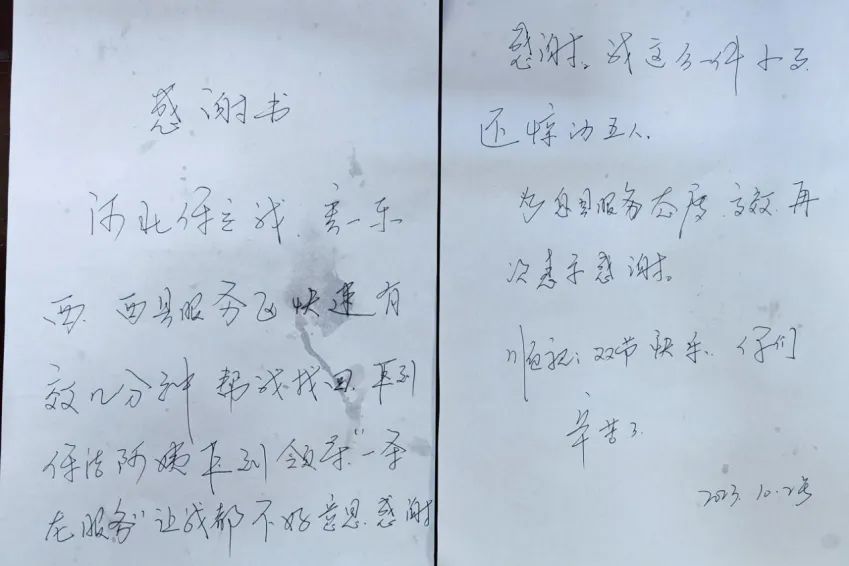 感谢书
河北保定我
西 服务区快速有
效几分钟 帮我找回 从
保洁阿姨 到领导"一条
龙服务"让我都不好意思 感谢
感谢。我这么一件小事
还惊动五人。
为 服务态度 高效 再
次表示感谢。
顺祝:双节快乐. 你们
辛苦了
2023.10.2号